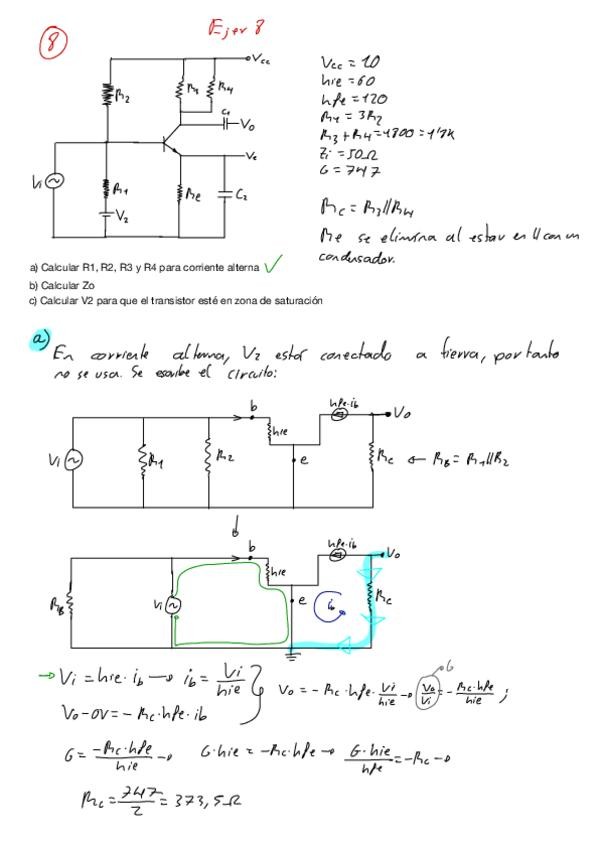 Ejer 8
8
Vcc
R2
R3
R4
C1
Vo
Ve
Vi
R1
Re
C2
V2
Vcc = 10
hie = 60
hfe = 120
R1 = 3R2
R3 + R4 = 1800 = 1'8k
Zi = 50Ω
G = 747
Rc = R3//R4
Re se elimina al estar en // con un
condensador.
a) Calcular R1, R2, R3 y R4 para corriente alterna
b) Calcular Zo
c) Calcular V2 para que el transistor esté en zona de saturación
a)
En corriente alterna, V2 estar conectado a tierra, por tanto
no se usa. Se escribe el circuito:
b
hfe·ib
Vo
hie
Vi
R1
R2
e
Rc
← RB = R1//R2
b
hfe·ib
Vo
hie
RB
Vi
e
ib
Rc
→ Vi = hie·ib → ib = Vi/hie
Vo-0V = -Rc·hfe·ib
Vo = -Rc·hfe·Vi/hie → Vo/Vi = -Rc·hfe/hie ;
G
G = -Rc·hfe/hie → G·hie = -Rc·hfe → G·hie/hfe = -Rc →
Rc = 747/2 = 373,5Ω